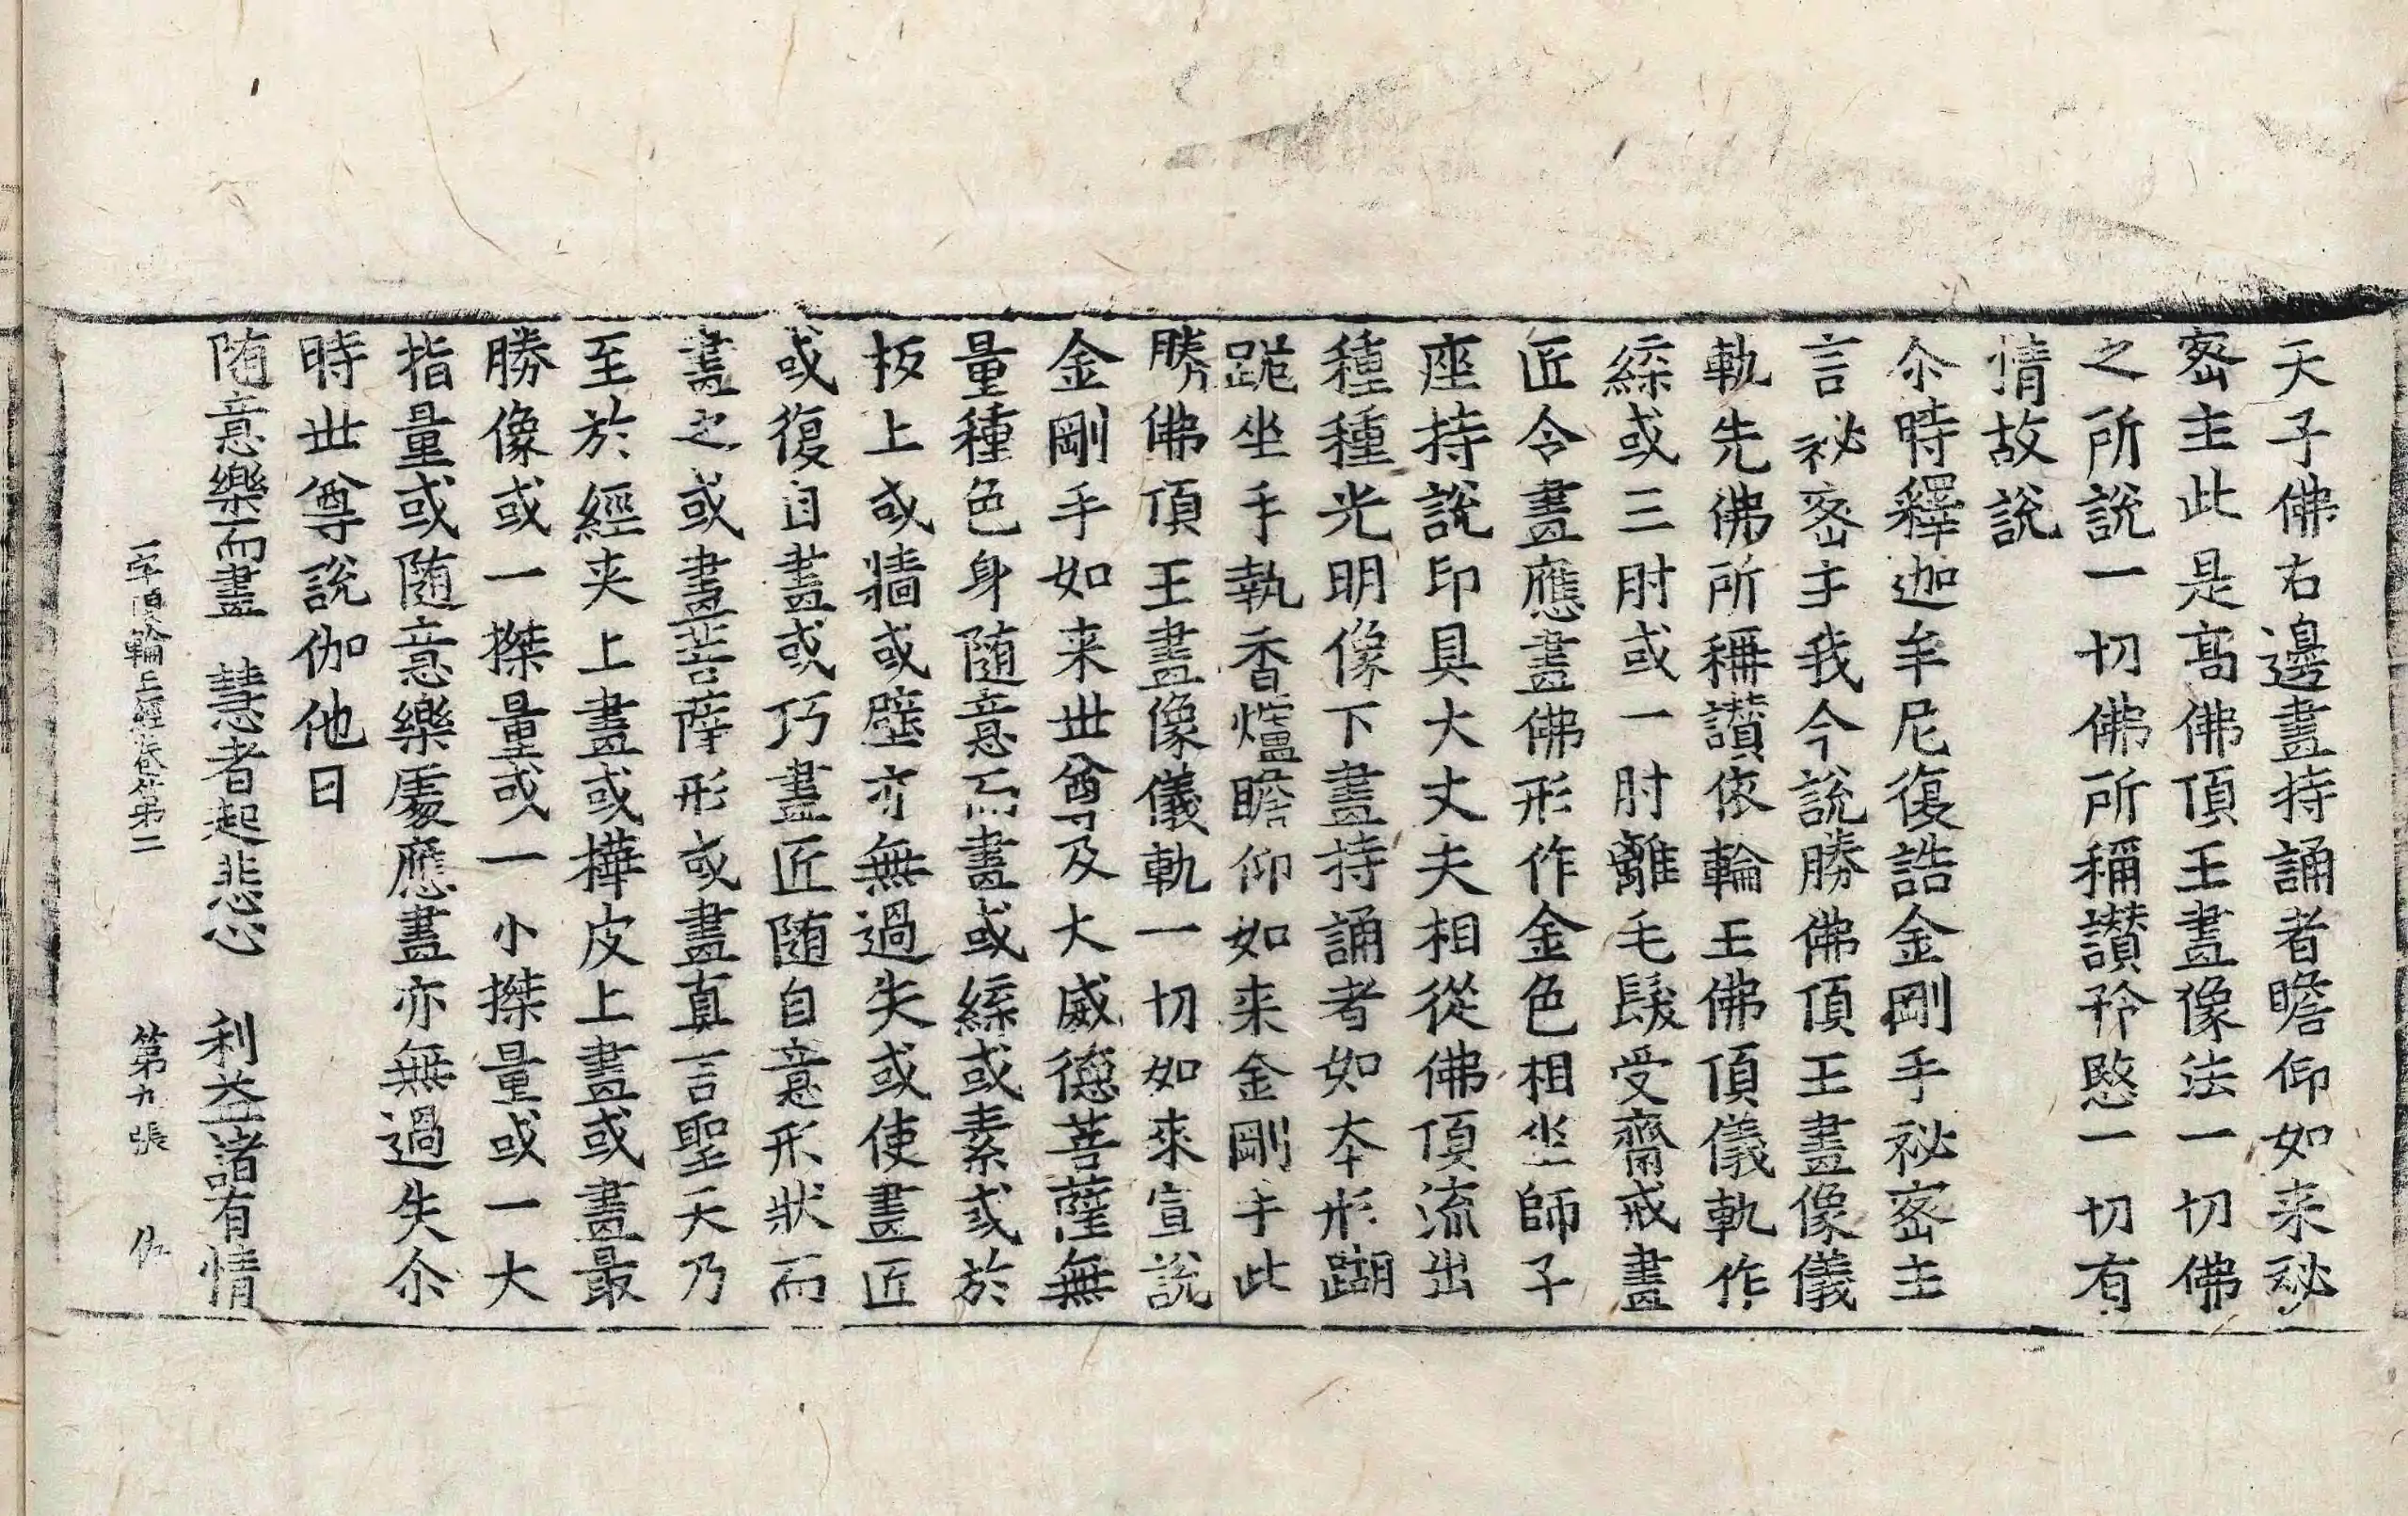 天子佛右邊畫持誦者瞻仰如来秘
密主此是高佛頂王畫像法一切佛
之所說一切佛所稱讚矜愍一切有
情故說
尒時釋迦牟尼復誥金剛手祕密主
言祕密主我今說勝佛頂王畫像儀
軌先佛所稱讚依輪王佛頂儀軌作
緤或三肘或一肘離毛髮受齋戒畫
匠令畫應畫佛形作金色相坐師子
座持說印具大丈夫相從佛頂流出
種種光明像下畫持誦者如本形𨄔
跪坐手執香爐瞻仰如来金剛手此
勝佛頂王畫像儀軌一切如來宣說
金剛手如来世尊及大威德菩薩無
量種色身隨意而畫或緤或素或於
板上或牆或壁亦無過失或使畫匠
或復自畫或巧畫匠随自意形狀而
畫之或畫菩薩形或畫真言聖天乃
至於經夾上畫或樺皮上畫或畫最
勝像或一搩量或一小搩量或一大
指量或随意樂處應畫亦無過失尒
時世尊說伽他曰
随意樂而畫　慧者起悲心　利益諸有情
一字頂輪王經卷第二　第九張　仏